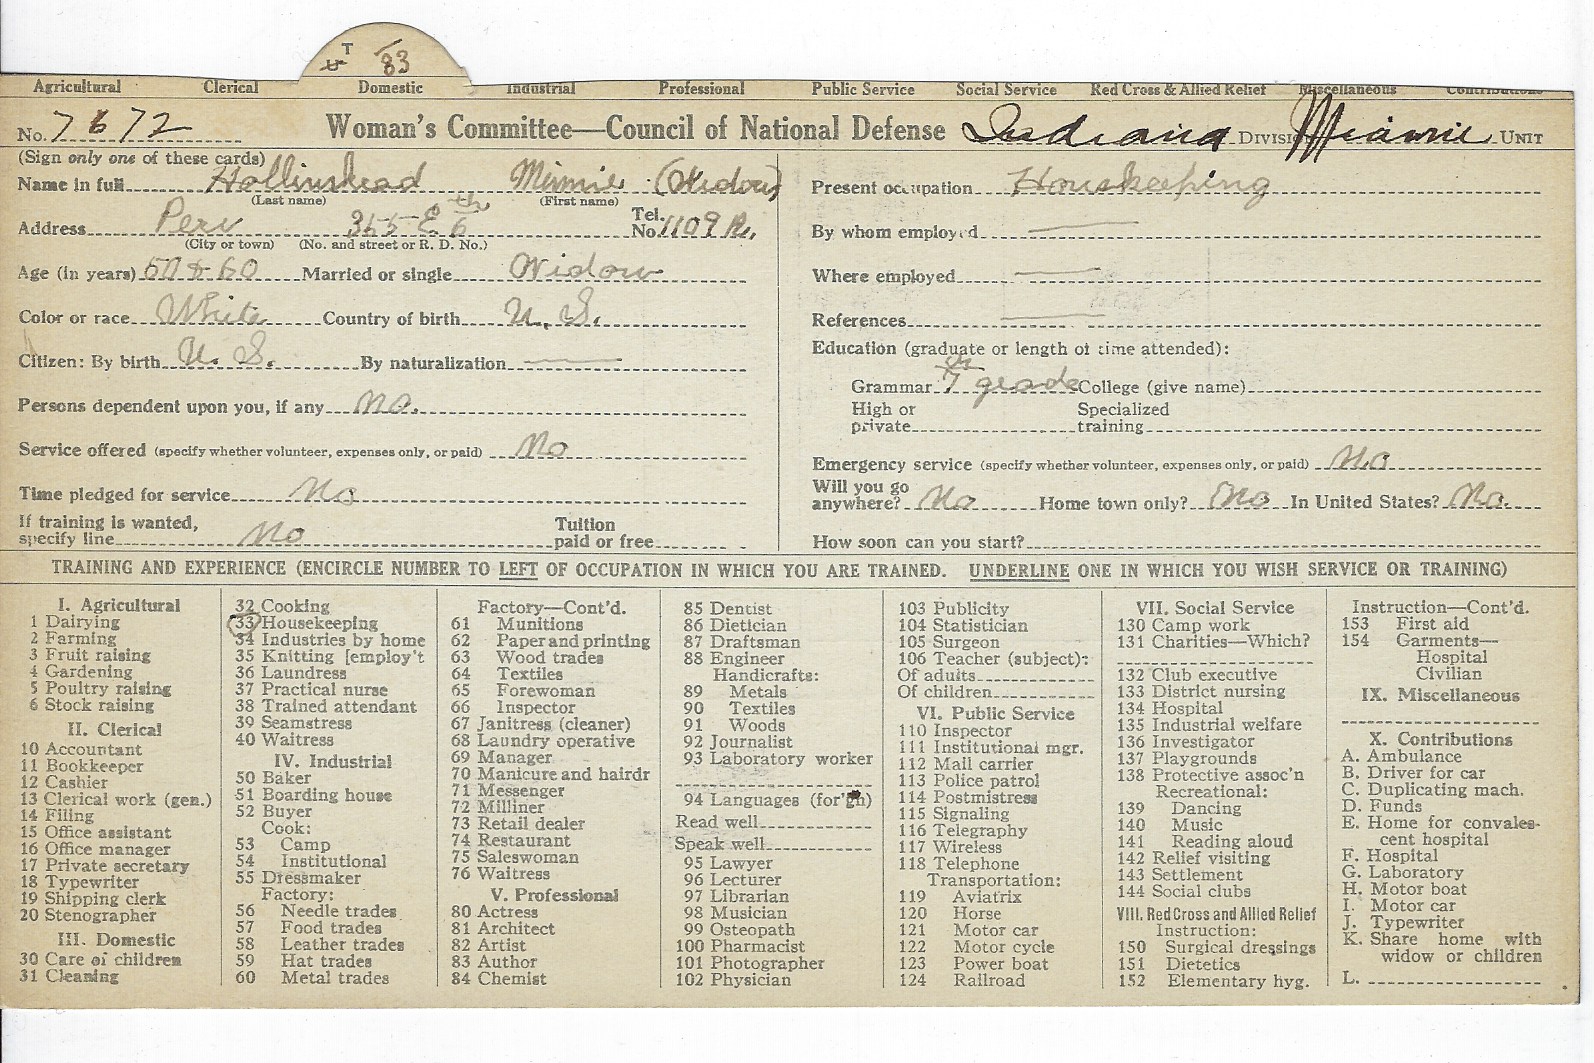 T 83
Agricultural Clerical Domestic Industrial Professional Public Service Social Service Red Cross & Allied Relief Miscellaneous Contributions
No. 7672 Woman's Committee—Council of National Defense Indiana DIVISION Miami UNIT
(Sign only one of these cards)
Name in full Hollinshead Minnie (Widow)
(Last name) (First name)
Address Peru 365 E 6th Tel. No. 1109 R.
(City or town) (No. and street or R. D. No.)
Age (in years) 50 to 60 Married or single Widow
Color or race White Country of birth U. S.
Citizen: By birth U. S. By naturalization
Persons dependent upon you, if any No.
Service offered (specify whether volunteer, expenses only, or paid) No
Time pledged for service No
If training is wanted, specify line No Tuition paid or free
Present occupation Houskeeping
By whom employed
Where employed
References
Education (graduate or length of time attended):
Grammar 7 grade College (give name)
High or private Specialized training
Emergency service (specify whether volunteer, expenses only, or paid) No
Will you go anywhere? No Home town only? No In United States? No.
How soon can you start?
TRAINING AND EXPERIENCE (ENCIRCLE NUMBER TO LEFT OF OCCUPATION IN WHICH YOU ARE TRAINED. UNDERLINE ONE IN WHICH YOU WISH SERVICE OR TRAINING)
I. Agricultural
1 Dairying
2 Farming
3 Fruit raising
4 Gardening
5 Poultry raising
6 Stock raising
II. Clerical
10 Accountant
11 Bookkeeper
12 Cashier
13 Clerical work (gen.)
14 Filing
15 Office assistant
16 Office manager
17 Private secretary
18 Typewriter
19 Shipping clerk
20 Stenographer
III. Domestic
30 Care of children
31 Cleaning
32 Cooking
33 Housekeeping
34 Industries by home
35 Knitting [employ't
36 Laundress
37 Practical nurse
38 Trained attendant
39 Seamstress
40 Waitress
IV. Industrial
50 Baker
51 Boarding house
52 Buyer
Cook:
53 Camp
54 Institutional
55 Dressmaker
Factory:
56 Needle trades
57 Food trades
58 Leather trades
59 Hat trades
60 Metal trades
Factory—Cont'd.
61 Munitions
62 Paper and printing
63 Wood trades
64 Textiles
65 Forewoman
66 Inspector
67 Janitress (cleaner)
68 Laundry operative
69 Manager
70 Manicure and hairdr
71 Messenger
72 Milliner
73 Retail dealer
74 Restaurant
75 Saleswoman
76 Waitress
V. Professional
80 Actress
81 Architect
82 Artist
83 Author
84 Chemist
85 Dentist
86 Dietician
87 Draftsman
88 Engineer
Handicrafts:
89 Metals
90 Textiles
91 Woods
92 Journalist
93 Laboratory worker
94 Languages (for'gn)
Read well
Speak well
95 Lawyer
96 Lecturer
97 Librarian
98 Musician
99 Osteopath
100 Pharmacist
101 Photographer
102 Physician
103 Publicity
104 Statistician
105 Surgeon
106 Teacher (subject):
Of adults
Of children
VI. Public Service
110 Inspector
111 Institutional mgr.
112 Mail carrier
113 Police patrol
114 Postmistress
115 Signaling
116 Telegraphy
117 Wireless
118 Telephone
Transportation:
119 Aviatrix
120 Horse
121 Motor car
122 Motor cycle
123 Power boat
124 Railroad
VII. Social Service
130 Camp work
131 Charities—Which?
132 Club executive
133 District nursing
134 Hospital
135 Industrial welfare
136 Investigator
137 Playgrounds
138 Protective assoc'n
Recreational:
139 Dancing
140 Music
141 Reading aloud
142 Relief visiting
143 Settlement
144 Social clubs
VIII. Red Cross and Allied Relief
Instruction:
150 Surgical dressings
151 Dietetics
152 Elementary hyg.
Instruction—Cont'd.
153 First aid
154 Garments—
Hospital
Civilian
IX. Miscellaneous
X. Contributions
A. Ambulance
B. Driver for car
C. Duplicating mach.
D. Funds
E. Home for convales-
cent hospital
F. Hospital
G. Laboratory
H. Motor boat
I. Motor car
J. Typewriter
K. Share home with
widow or children
L.